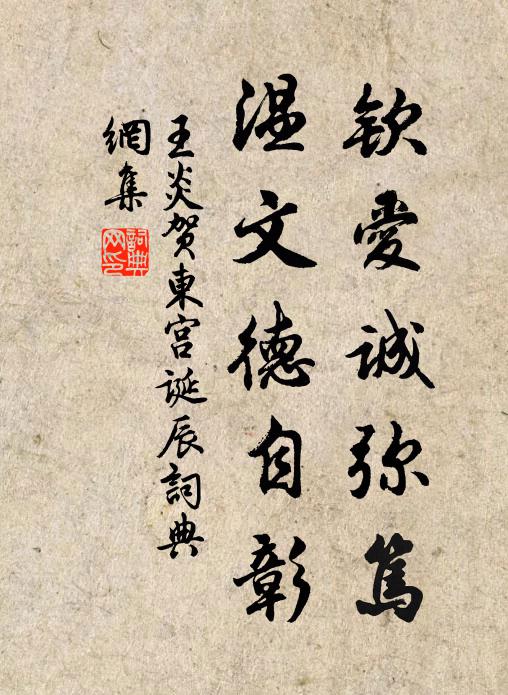 钦爱诚弥笃
温文德自彰
王炎贺東宫誕辰詞典
網集
詞典
网印